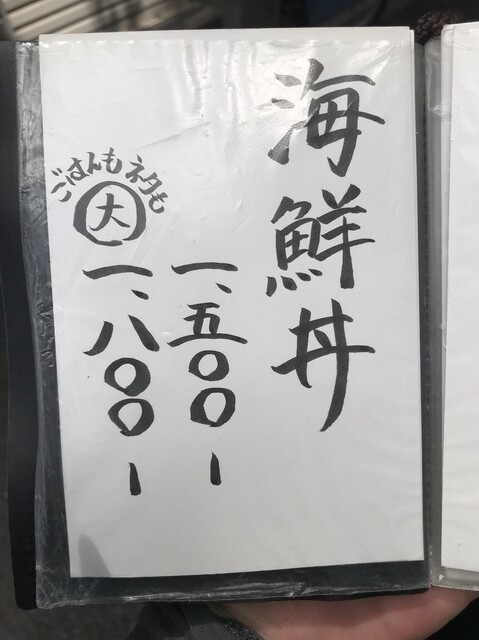 海鮮丼
一、五〇〇ー
ごはんもネタも
大
一、八〇〇ー